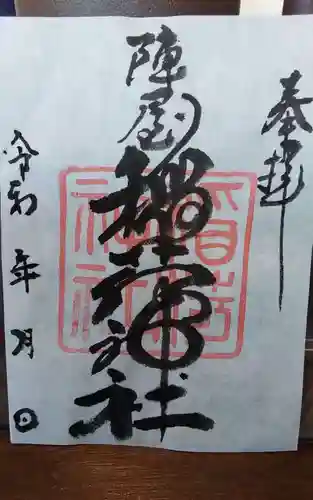 奉拝
陣屋
稲荷神社
神社
令和 年 月 日